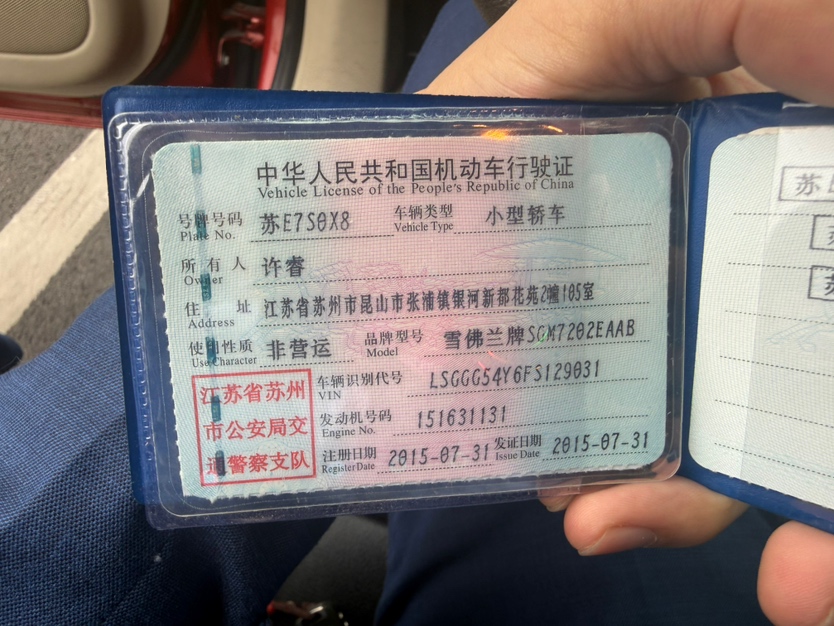 中华人民共和国机动车行驶证
Vehicle License of the People's Republic of China
号牌号码 苏E7S0X8 车辆类型 小型轿车
Plate No. Vehicle Type
所有人 许睿
Owner
住址 江苏省苏州市昆山市张浦镇银河新都花苑2幢105室
Address
使用性质 非营运 品牌型号 雪佛兰牌SGM7202EAAB
Use Character Model
江苏省苏州
市公安局交
通警察支队
车辆识别代号 LSGGG54Y6FS129031
VIN
发动机号码 151631131
Engine No.
注册日期 2015-07-31 发证日期 2015-07-31
Register Date Issue Date
苏